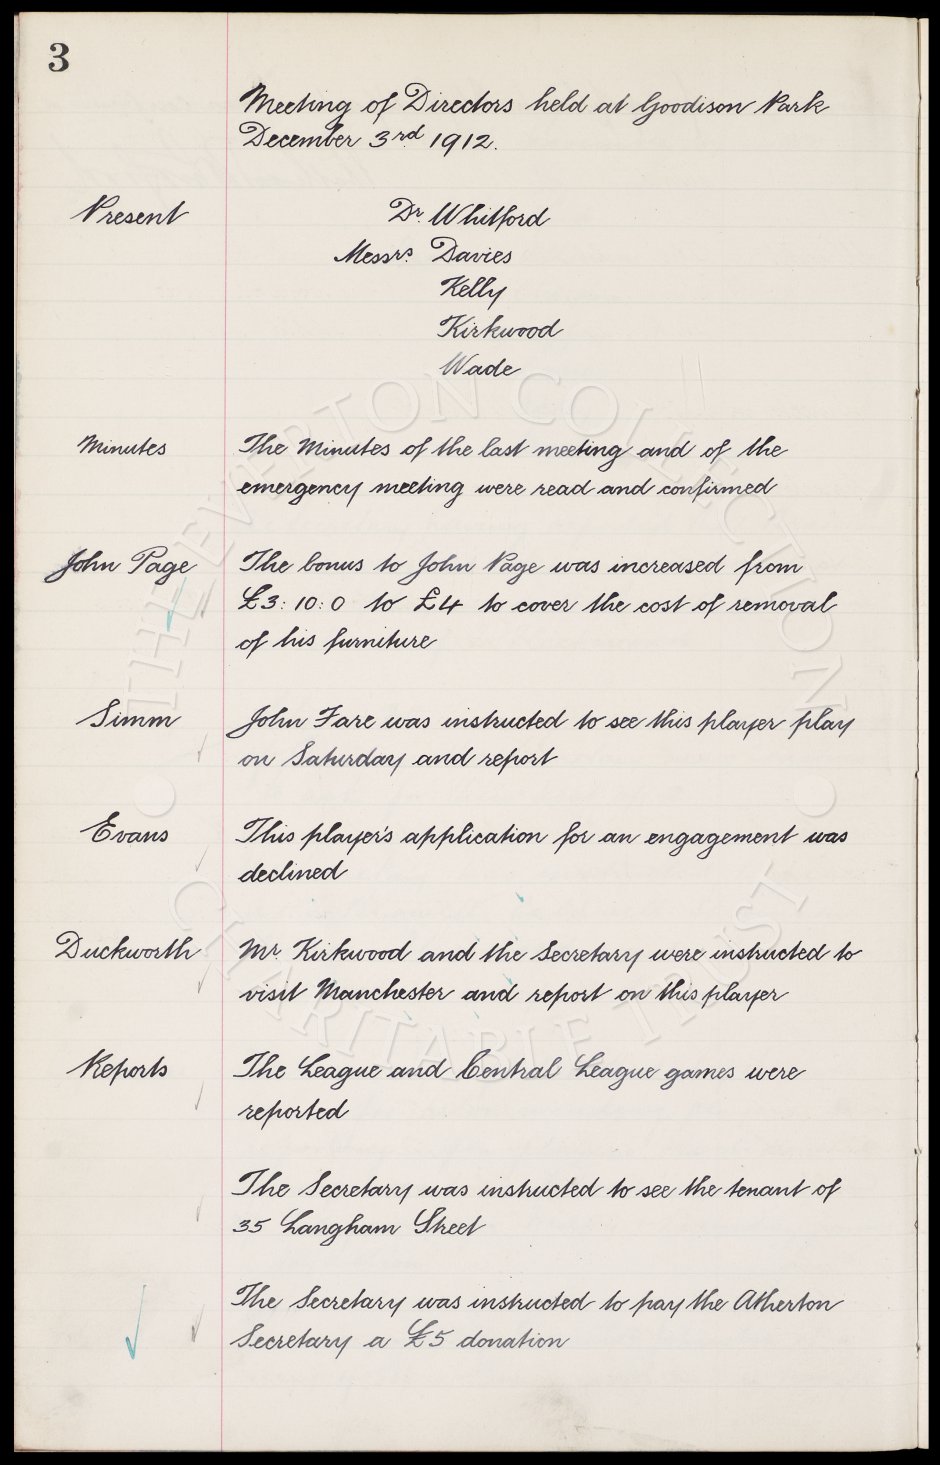 3
Meeting of Directors held at Goodison Park
December 3rd 1912.
Present
Dr. Whitford
Messrs. Davies
Kelly
Kirkwood
Wade
Minutes
The Minutes of the last meeting and of the
emergency meeting were read and confirmed
John Page
The bonus to John Page was increased from
£3:10:0 to £4 to cover the cost of removal
of his furniture
Simm
John Fare was instructed to see this player play
on Saturday and report
Evans
This player's application for an engagement was
declined
Duckworth
Mr Kirkwood and the Secretary were instructed to
visit Manchester and report on this player
Reports
The League and Central League games were
reported
The Secretary was instructed to see the tenant of
35 Langham Street
The Secretary was instructed to pay the Atherton
Secretary a £5 donation
THE EVERTON COLLECTION
CHARITABLE TRUST